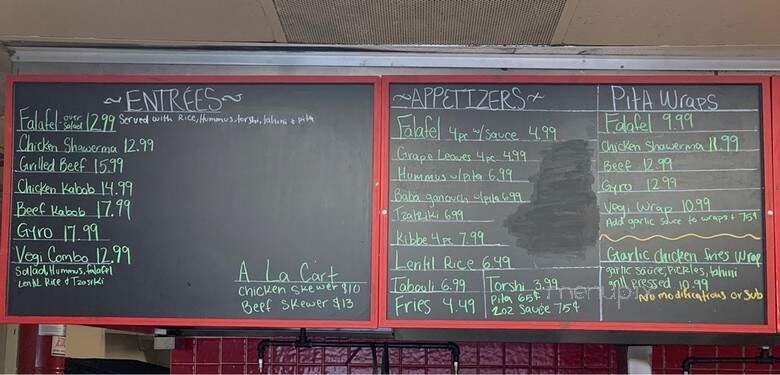 ~ENTRÉES~
Falafel over salad 12.99 Served with Rice, Hummus, torshi, tahini + pita
Chicken Shawerma 12.99
Grilled Beef 15.99
Chicken Kabob 14.99
Beef Kabob 17.99
Gyro 17.99
Vegi Combo 12.99
Salad, Hummus, falafel
Lentil Rice & Tzatziki
A La Cart
Chicken Skewer $10
Beef Skewer $13
~APPETIZERS~
Falafel 4pc w/sauce 4.99
Grape Leaves 4pc 4.99
Hummus w/pita 6.99
Baba ganouch w/pita 6.99
Tzatziki 6.99
Kibbe 4pc 7.99
Lentil Rice 6.49
Tabouli 6.99
Fries 4.49
Torshi 3.99
Pita 65¢
2oz Sauce 75¢
Pita Wraps
Falafel 9.99
Chicken Shawerma 11.99
Beef 12.99
Gyro 12.99
Vegi Wrap 10.99
Add garlic sauce to wraps + 75¢
Garlic Chicken fries Wrap
garlic sauce, pickles, tahini
grill pressed 10.99
No modifications or Sub
menupix